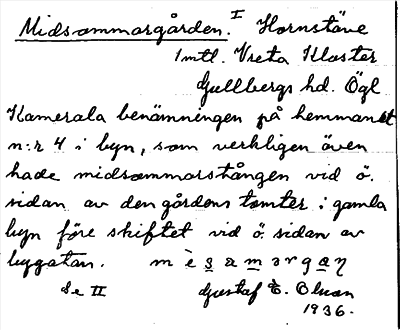 Midsommargården. I Hornstäve
1 mtl. Vreta Kloster
Gullbergs hd. Ögl
Kamerala benämningen på hemmanet
n:r 4 i byn, som verkligen även
hade midsommarstången vid ö.
sidan av den gårdens tomter i gamla
byn före skiftet vid ö. sidan av
bygatan.
Se II Gustaf E. Olsson
1936.